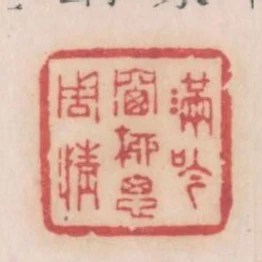 滿吟
窗柳思
周情